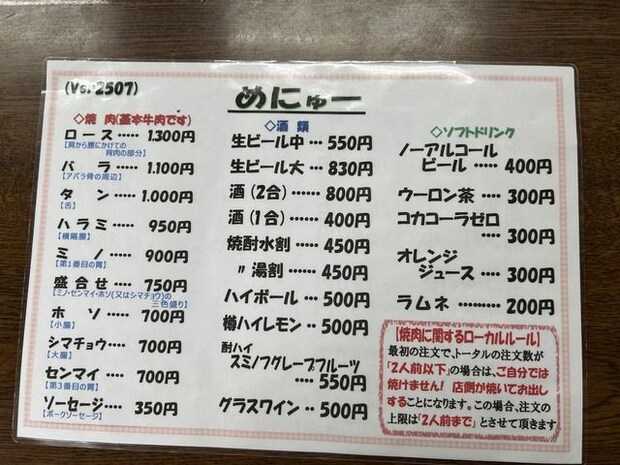 (Vsr2507)
めにゅー
◇焼 肉(基本牛肉です)
ロース ····· 1.300円
【肩から腰にかけての
背肉の部分】
バ ラ ······ 1.100円
【アバラ骨の周辺】
タ ン ······ 1.000円
【舌】
ハラミ ······ 950円
【横隔膜】
ミ ノ ······ 900円
【第1番目の胃】
盛合せ ····· 750円
【ミノ・センマイ・ホソ(又はシマチョウ)の
三色盛り】
ホ ソ ······ 700円
【小腸】
シマチョウ···· 700円
【大腸】
センマイ ···· 700円
【第3番目の胃】
ソーセージ···· 350円
【ポークソーセージ】
◇酒 類
生ビール中 ··· 550円
生ビール大 ··· 830円
酒(2合) ······ 800円
酒(1合) ······ 400円
焼酎水割 ····· 450円
〃湯割 ····· 450円
ハイボール ···· 500円
樽ハイレモン ·· 500円
酎ハイ
スミノフグレープフルーツ
···· 550円
グラスワイン ·· 500円
◇ソフトドリンク
ノーアルコール
ビール ····· 400円
ウーロン茶 ···· 300円
コカコーラゼロ
···· 300円
オレンジ
ジュース ···· 300円
ラムネ ········· 200円
【焼肉に関するローカルルール】
最初の注文で、トータルの注文数が
「2人前以下」の場合は、ご自分では
焼けません! 店側が焼いてお出し
することになります。この場合、注文の
上限は「2人前まで」とさせて頂きます